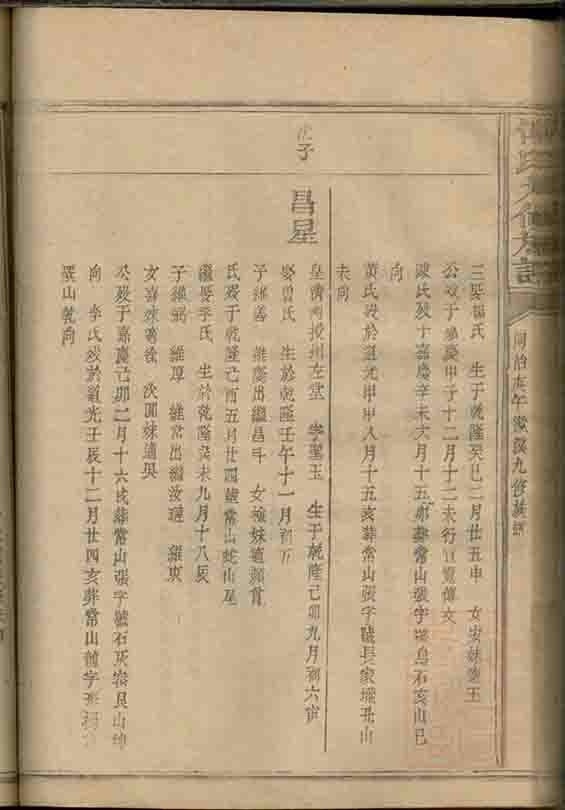 氏九修族譜
同治庚午 九修族譜
三娶楊氏 生于乾隆癸巳二月廿五申 女安妹適王
公歿于嘉慶甲子十二月十二未行
陳氏歿于嘉慶辛未六月十五 葬常山張字 烏石亥山巳
向
黃氏歿於道光甲申八月十五亥葬常山張字號長家壠丑山
未向
子
昌星
皇清 授州左堂 字聖玉 生于乾隆己卯九月初六寅
娶曾氏 生於乾隆壬午十一月初五
子維善 維慶出繼昌斗 女 妹適顏
氏歿于乾隆己酉五月廿四 葬常山蛇山尾
繼娶李氏 生於乾隆癸未九月十八辰
子維弼 維厚 維常出繼汝璉 維
女喜妹適徐 次圓妹適吳
公歿于嘉慶己卯二月十六戌葬常山張字號石灰 艮山坤
向 李氏歿於道光壬辰十二月廿四亥葬常山 字
山乾向